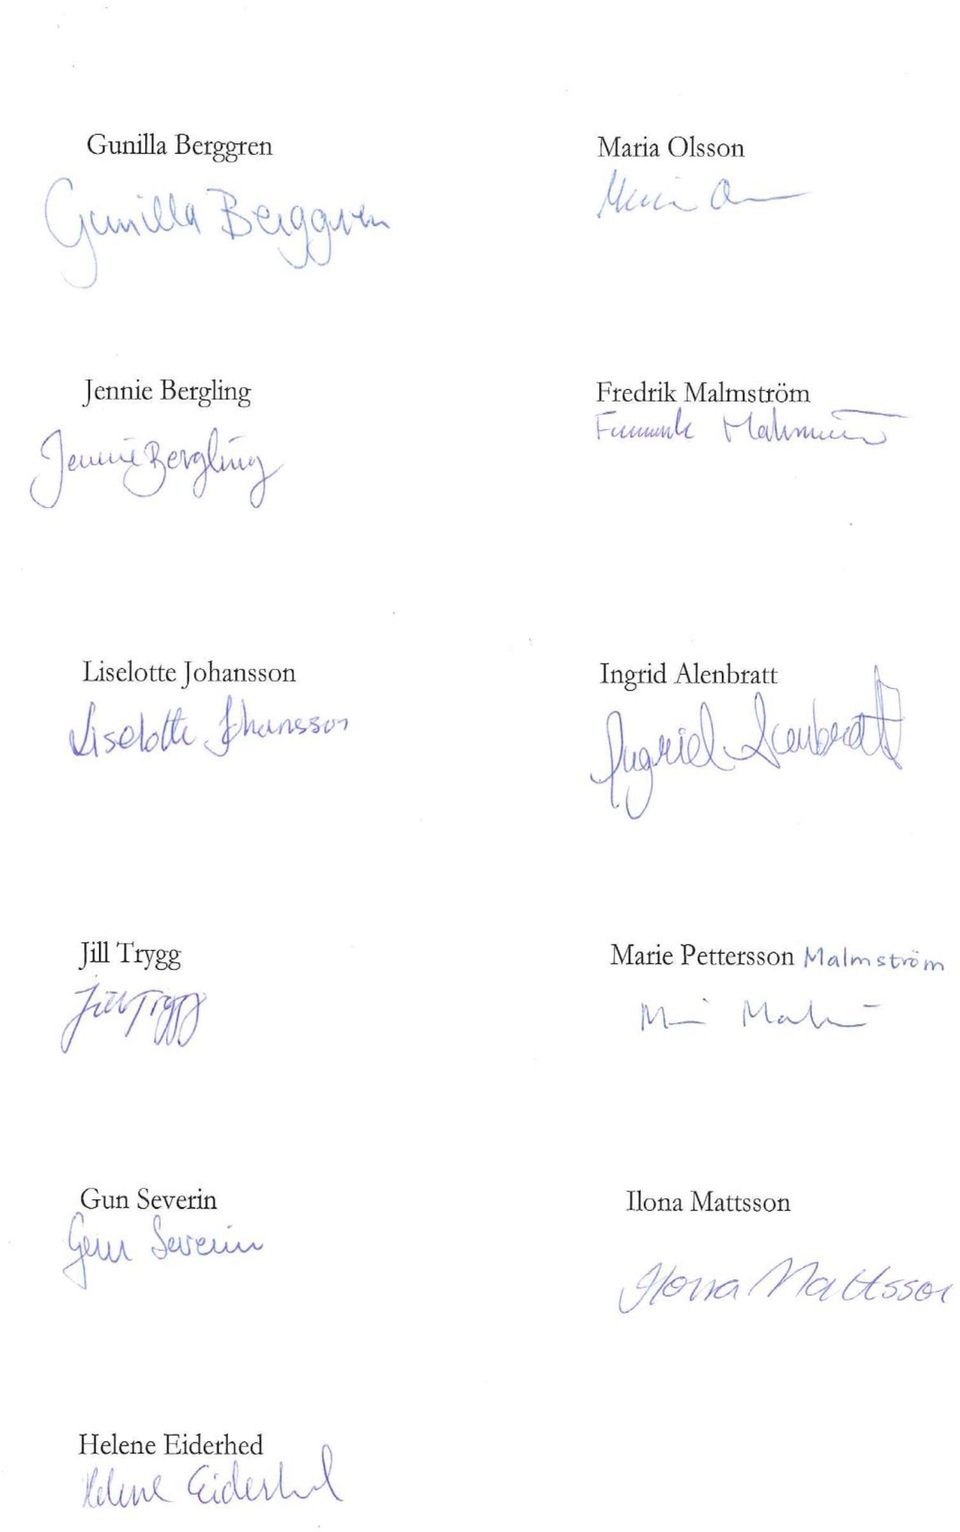 Gunilla Berggren
Maria Olsson
Gunilla Berggren
Jennie Bergling
Fredrik Malmström
Jennie Bergling
Liselotte Johansson
Ingrid Alenbratt
Liselotte Johansson
Ingrid Alenbratt
Jill Trygg
Marie Pettersson Malmström
Jill Trygg
Gun Severin
Ilona Mattsson
Gun Severin
Ilona Mattsson
Helene Eiderhed
Helene Eiderhed